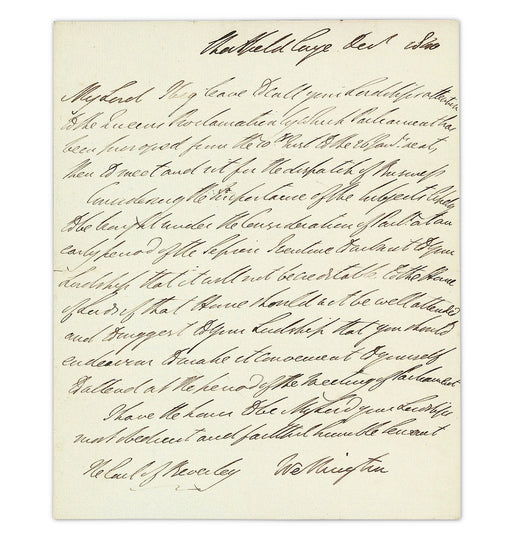 Strathfield Saye Dec 1840
My Lord I beg leave to call your Lordship's attention
to the Queen's Proclamation by which Parliament has
been prorogued from the 10th Inst to the 26 Jan. next,
then to meet and sit for the dispatch of Business
Considering the importance of the Subjects likely
to be brought under the Consideration of Parlt at an
early period of the Session I venture to submit to Your
Lordship that it will not be creditable to the House
of Lords if that House should not be well attended
and to suggest to Your Lordship that you should
endeavour to make it convenient to yourself
to attend at the period of the Meeting of Parliament
I have the honor to be My Lord your Lordship's
most obedient and faithful humble Servant
The Earl of Beverley Wellington